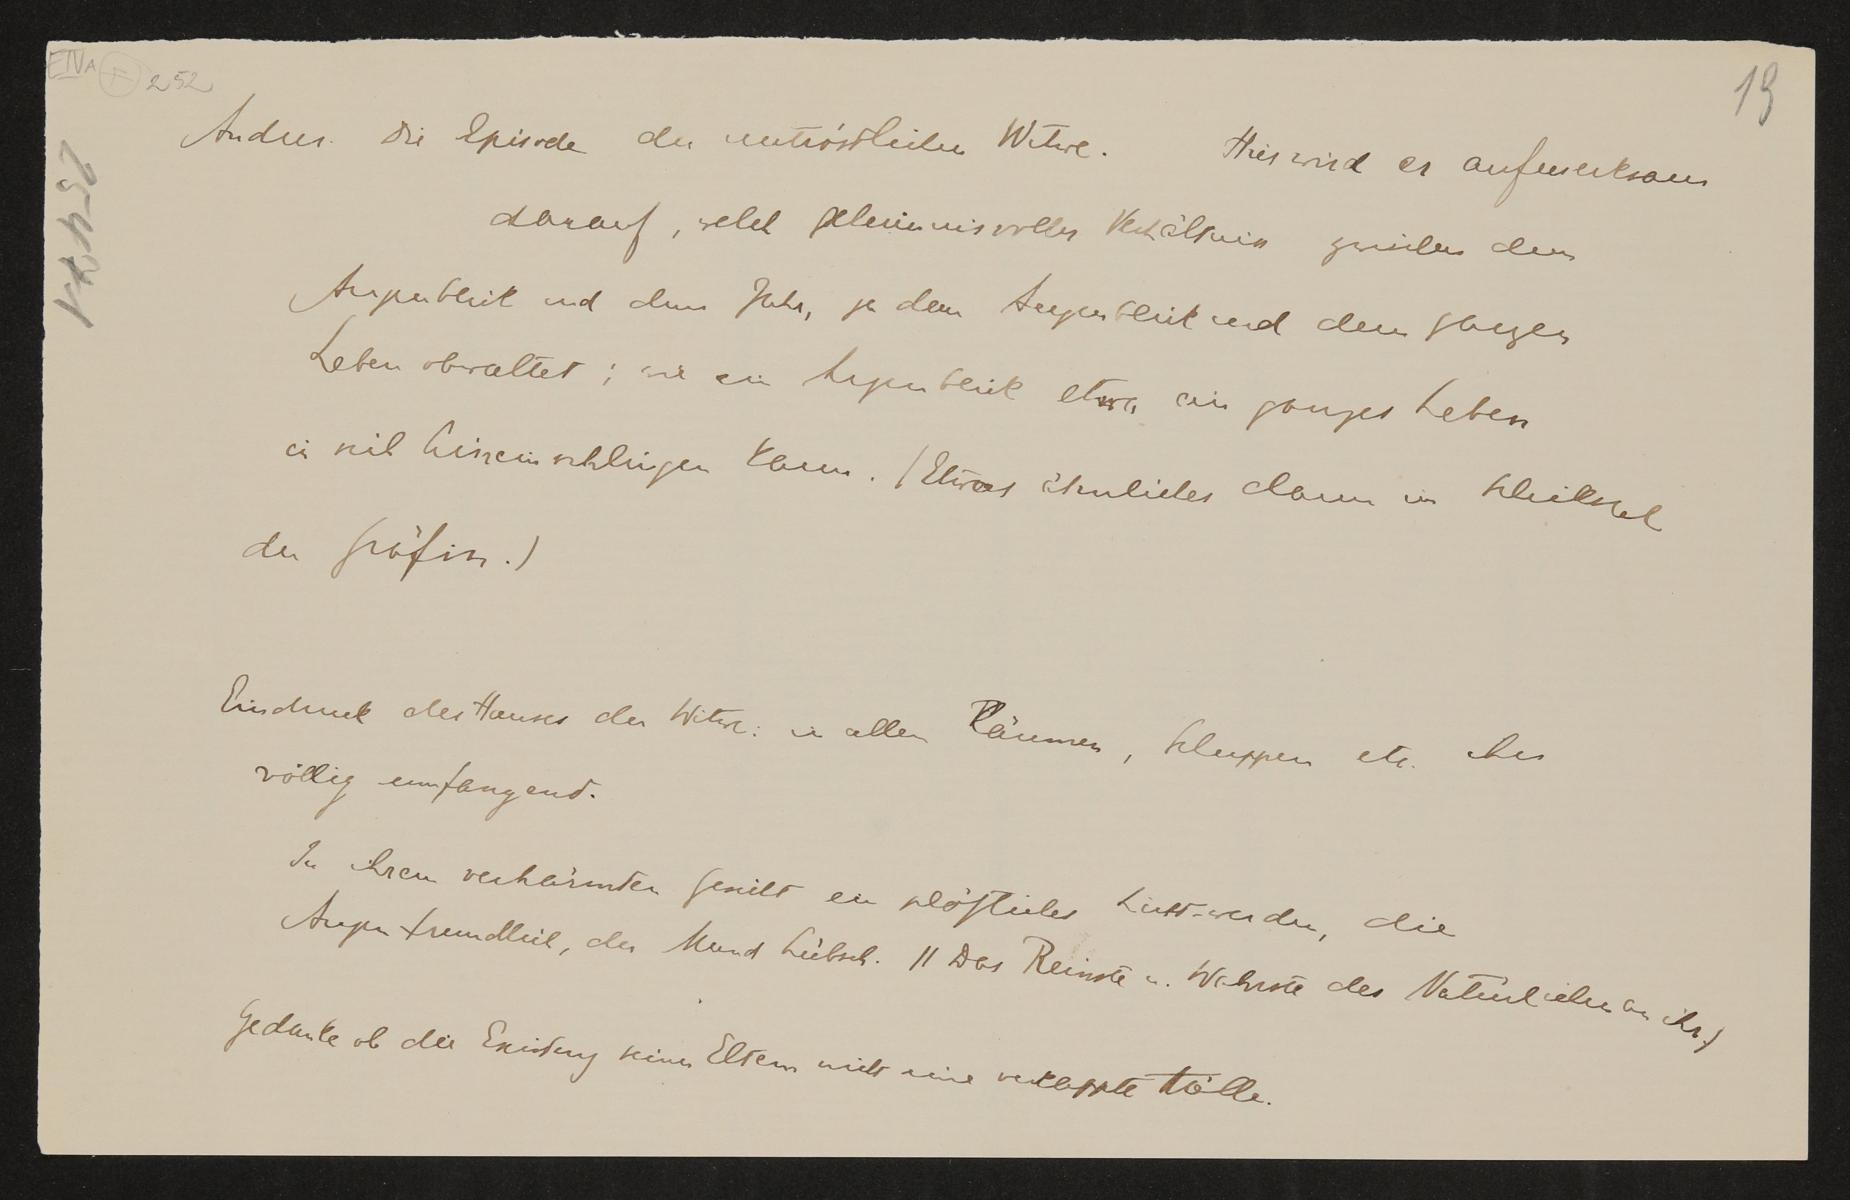 E IV A F 252
19
Andres. Die Episode der untröstlichen Witwe. Hier wird er aufmerksam
darauf, welch geheimnisvolles Verhältnis zwischen dem
Augenblick und dem Jahr, ja dem Augenblick und dem ganzen
Leben obwaltet; wie ein Augenblick etwa ein ganzes Leben
in sich hineinschlingen kann. (Etwas ähnliches dann im Schicksal
der Gräfin.)
Eindruck des Hauses der Witwe: in allen Räumen, Schuppen etc. ihn
völlig umfangend.
In ihrem verhärmten Gesicht ein plötzliches Licht-werden, die
Augen freundlich, der Mund hübsch. || Das Reinste u. Wahrste des Natürlichen an ihr.)
Gedanke ob die Existenz seiner Eltern nicht eine verkappte Hölle.